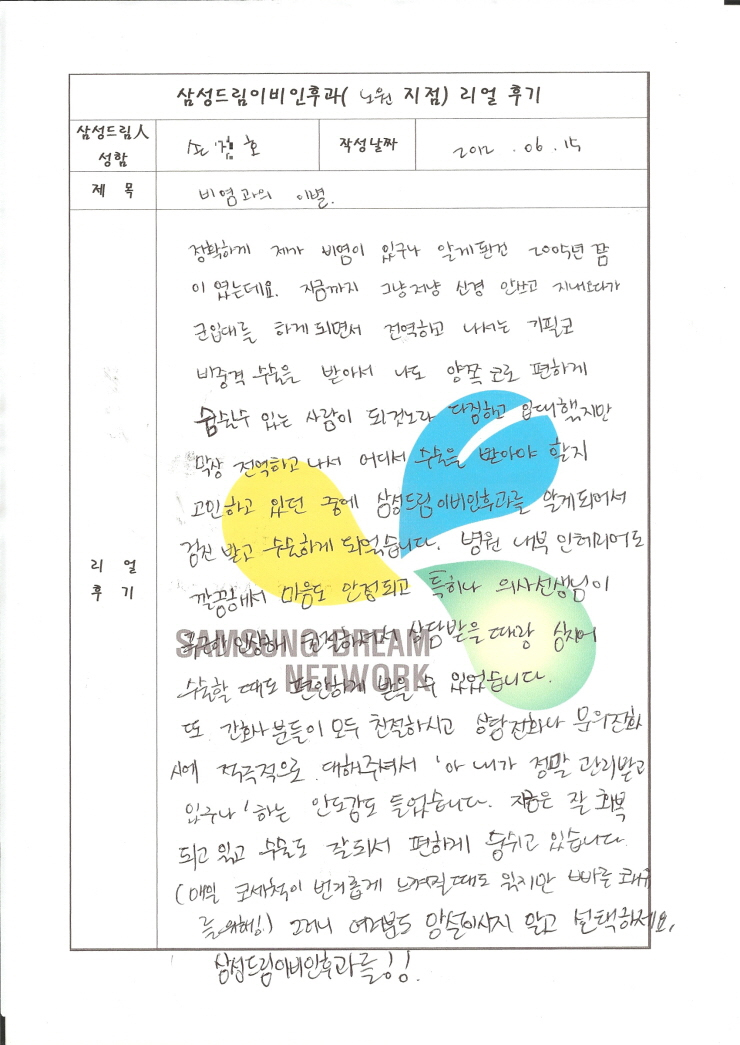 삼성드림이비인후과( 노원 지점) 리얼 후기
삼성드림人
성함
작성날짜
2012 . 06. 15
제 목
비염과의 이별.
리 얼
후 기
정확하게 제가 비염이 있구나 알게된건 2005년 쯤
이였는데요. 지금까지 그냥저냥 신경 안쓰고 지내오다가
군입대를 하게 되면서 전역하고 나서는 기필코
비중격 수술을 받아서 나도 양쪽 코로 편하게
숨쉴수 있는 사람이 되겠노라 다짐하고 입대했지만
막상 전역하고나서 어디서 수술을 받아야 할지
고민하고 있던 중에 삼성드림이비인후과를 알게되어서
검진 받고 수술하게 되었습니다. 병원 내부 인테리어도
깔끔해서 마음도 안정되고 특히나 의사선생님이
친절하셔서 상담받을 때랑 심지어
수술할 때도 편안하게 받을 수 있었습니다.
SAMSUNG DREAM
NETWORK
또 간호사분들이 모두 친절하시고 상담전화나 문의전화
시에 적극적으로 대해주셔서 '아 내가 정말 관리받고
있구나' 하는 안도감도 들었습니다. 지금은 잘 회복
되고 있고 수술도 잘되서 편하게 숨쉬고 있습니다.
(매일 코세척이 번거롭게 느껴질때도 있지만 빠른 쾌유
를 위해!) 그러니 여러분도 망설이시지 말고 선택하세요,
삼성드림이비인후과를!!